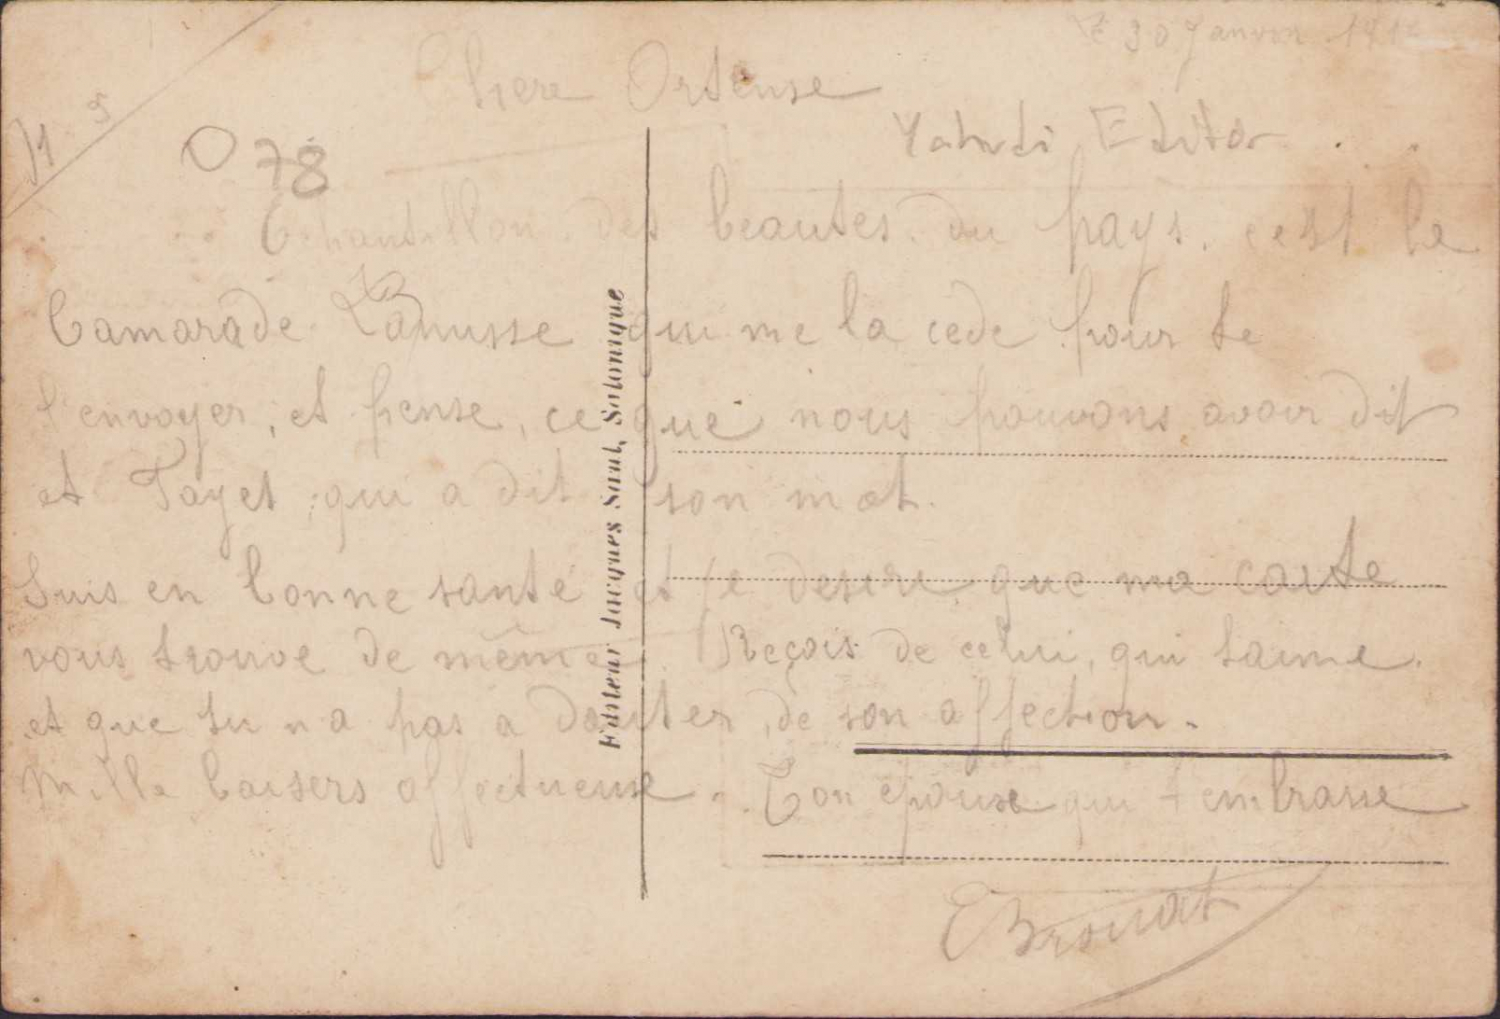 30 Janvier 191
Chere Ortense
078
Yahudi Editor
Echantillon des beautes du pays. c'est le
Camarade Lanusse qui me la cede pour te
l'envoyer, et pense, ce que nous pouvons avoir dit
et Tayet qui a dit son mot.
Suis en bonne santé et je desire que ma carte
vous trouve de même. Reçois de celui, qui taime.
et que tu n a pas a douter, de son affection.
Mille baisers affectueuse. Ton epouse qui t embrasse
EBrouat
Editeur Jacques Saul, Salonique